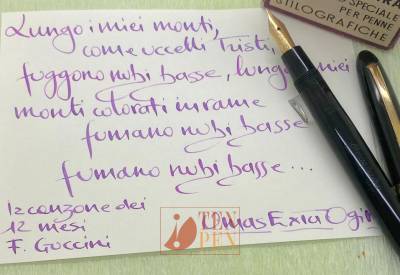 Lungo i miei monti,
come uccelli tristi,
fuggono nubi basse, lungo i miei
monti colorati in rame
fumano nubi basse
fumano nubi basse...
La canzone dei
12 mesi
F. Guccini
Omas Extra Ogiva
SPECIALE
PER PENNE
STILOGRAFICHE
TEN
PEN